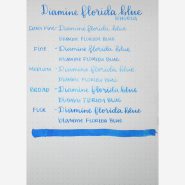 Diamine florida blue
Extra Fine - Diamine florida blue
DIAMINE FLORIDA BLUE
Fine - Diamine florida blue
DIAMINE FLORIDA BLUE
Medium - Diamine florida blue
DIAMINE FLORIDA BLUE
Broad - Diamine florida blue
DIAMINE FLORIDA BLUE
Flex - Diamine florida blue
DIAMINE FLORIDA BLUE